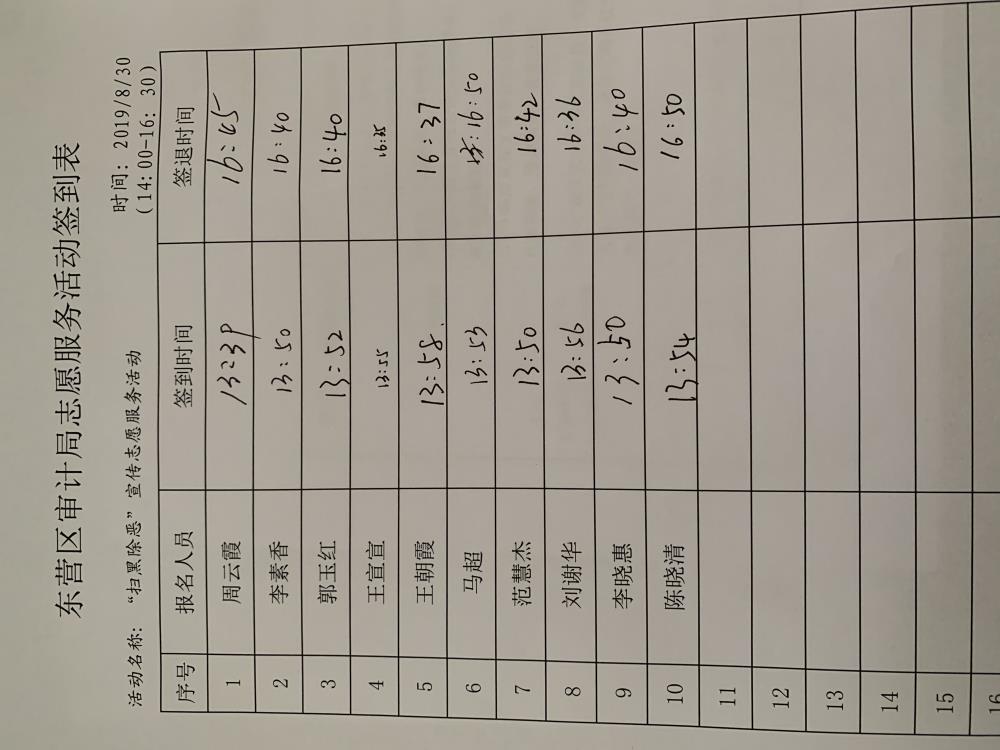 东营区审计局志愿服务活动签到表
活动名称：“扫黑除恶”宣传志愿服务活动 时间：2019/8/30
(14:00-16:30)
序号 报名人员 签到时间 签退时间
1 周云霞 13:39 16:45
2 李素香 13:50 16:40
3 郭玉红 13:52 16:40
4 王宣宣 13:55 16:35
5 王朝霞 13:58. 16:37
6 马超 13:53 16:50
7 范慧杰 13:50 16:42
8 刘谢华 13:56 16:36
9 李晓惠 13:50 16:40
10 陈晓清 13:54 16:50
11
12
13
14
15
16